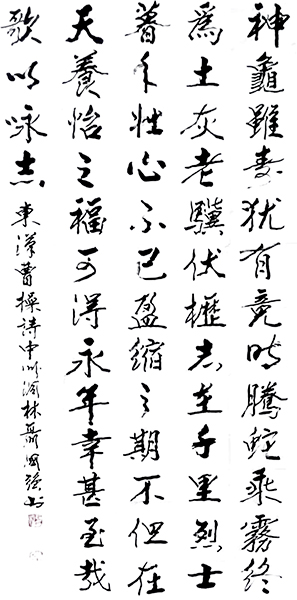 神龜雖壽猶有竟時騰蛇乘霧終
為土灰老驥伏櫪志在千里烈士
暮年壯心不已盈縮之期不但在
天養怡之福可得永年幸甚至哉
歌以咏志
東漢曹操詩中
林聶國強书